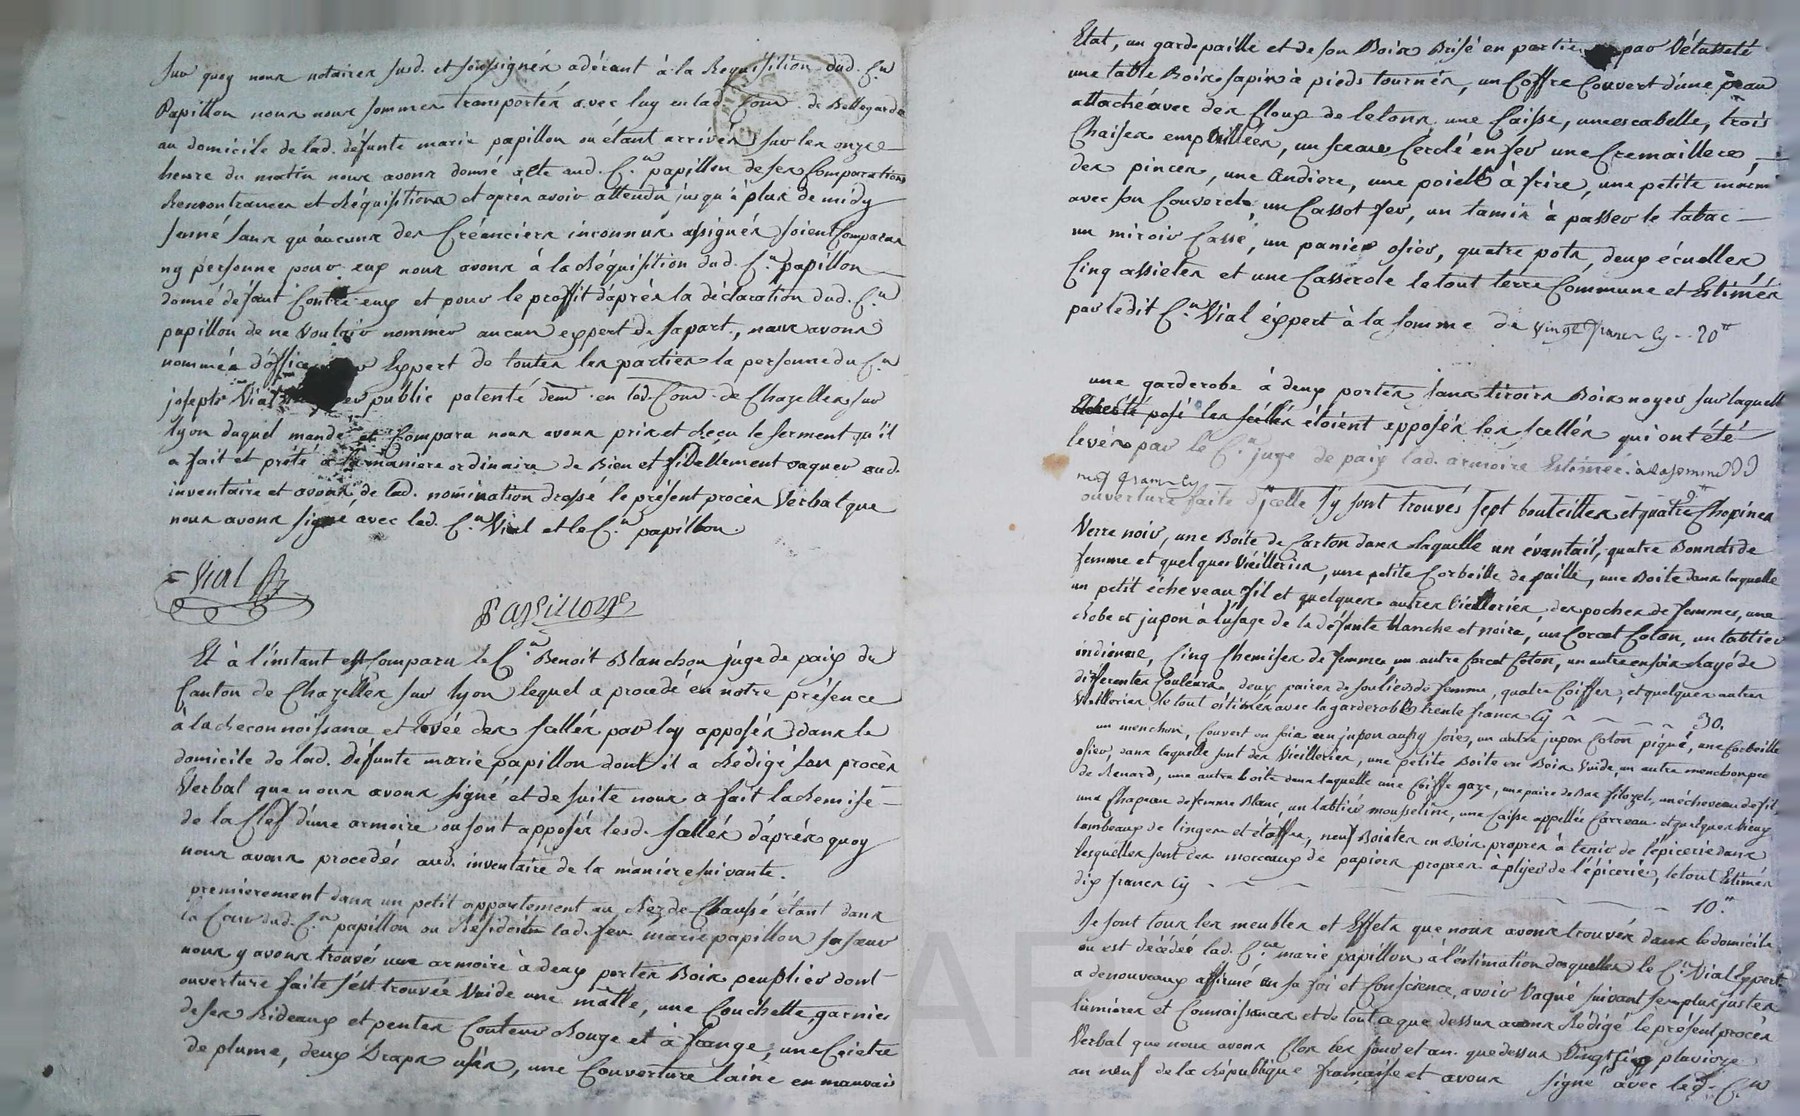 Sur quoy nous notaires susd. et soussignés adérant à la Requisition dud. C.en
Papillon nous nous sommes transportés avec luy en lad. Com. de Bellegarde
au domicile de lad. défunte marie papillon ou étant arrivés sur les onze
heure du matin nous avons donné acte aud. C.en papillon de ses Comparations
Remontrances et Réquisitions et après avoir attendu jusqu'à plus de midy
sonné sans qu'aucuns des Créanciers inconnus assignés soient Comparus
ny personne pour eux nous avons à la Réquisition dud. C.en papillon
donné défaut Contre eux et pour le proffit d'après la déclaration dud. C.en
papillon de ne vouloir nommer aucun expert de sa part, nous avons
nommés d'office Expert de toutes les parties la personne du C.en
joseph Vial public patenté dem.t en lad. Com. de Chazelles sur
lyon duquel mandé et Comparu nous avons pris et Recu le serment qu'il
a fait et prété à la maniere ordinaire de Bien et fidellement vaquer aud.
inventaire et avons de lad. nomination dressé le présent procès Verbal que
nous avons signé avec led. C.en Vial et le C.en papillon.
Vial
Papillon
Et à l'instant est Comparu le C.en Benoit Blanchon juge de paix du
Canton de Chazelles sur lyon lequel a procedé en notre présence
à la Reconnoissance et levée des scellés par luy apposés dans le
domicile de lad. Défunte marie papillon dont il a Rédigé son procès
Verbal que nous avons signé et de suite nous a fait la Remise
de la Clef d'une armoire ou sont apposés lesd. scellés d'après quoy
nous avons procedés aud. inventaire de la maniere suivante.
premierement dans un petit appartement au Rez de Chaussé étant dans
la Cour dud. C.en papillon ou Résidoit lad. feu marie papillon sa sœur
nous y avons trouvé une armoire à deux portes Bois peuplier dont
ouverture faite s'est trouvée Vuide une malle, une Couchette garnie
de ses Rideaux et pentes Couleur Rouge et à frange, une Coietre
de plume, deux Draps usés, une Couverture laine en mauvais
Etat, un gardepaille et de son Bois Brisé en partie par Vétusteté
une table Bois sapin à pieds tournés, un Coffre Couvert d'une peau
attaché avec des Cloux de letons une Caisse, une escabelle, trois
Chaises empaillées, un sceau Cerclé en fer une Cremaillere,
des pinces, une Andiere, une poiele à frire, une petite
avec son Couvercle, un Cassot fer, un tamis à passer le tabac
un miroir Cassé, un panier osier, quatre pots, deux écuelles
Cinq assietes et une Casserole le tout terre Commune et Estimés
par ledit C.en Vial éxpert à la somme de vingt francs Cy -- 20tt
une garderobe à deux portes sans tiroirs Bois noyer sur laquelle
posé les scellés étoient apposés les scellés qui ont été
levés par le C.en juge de paix lad. armoire Estimée. à la somme de
neuf francs Cy 9tt
ouverture faite d'jcelle s'y sont trouvés sept bouteilles et quatre Chopines
Verre noir, une Boite de Carton dans Laquelle un évantail, quatre Bonnets de
femme et quelques Vieilleries, une petite Corbeille de paille, une Boite dans laquelle
un petit écheveau fil et quelques autres Vieilleries, des poches de femmes, une
Robe et jupon à l'usage de la défunte blanche et noire, un Corcet Coton, un tablier
indienne, Cinq Chemises de femmes, un autre Corcet Coton, un autre en soir Rayé de
différentes Couleurs, deux paires de souliers de femme, quatre Coiffes, et quelques autres
Vieilleries le tout estimés avec la garderobe trente francs Cy 30.
un menchon, Couvert en soie un jupon aussy soie, un autre jupon Coton piqué, une Corbeille
osier, dans laquelle sont des Vieilleries, une petite Boite en Bois Vuide, un autre menchon peau
de Renard, une autre boite dans laquelle une Coiffe gaze, une paire de Bas filozel, un écheveau de fil,
une Chapeau de femme Blanc, un tablier mousseline, une Caisse appellée Carreau et quelques Vieux
lambeaux de linges et étoffes, neuf Boietes en Bois propres à tenir de l'épicerie dans
lesquelles sont des morceaux de papiers propres à plijer de l'épicerie, le tout Estimés
dix francs Cy 10.tt
Ce sont tous les meubles et Effets que nous avons trouvés dans le domicile
ou est décédée lad. C.enne marie papillon à l'estimation desquelles le C.en Vial Expert
a de nouveaux affirmé en sa foi et Conscience, avoir Vaqué suivant ses plus justes
lumières et Connaissances et de tout ce que dessus avons Rédigé le présent procès
Verbal que nous avons Clos les jour et an que dessus Vingt six pluviose
an neuf de la République française et avons signé avec led. C.en